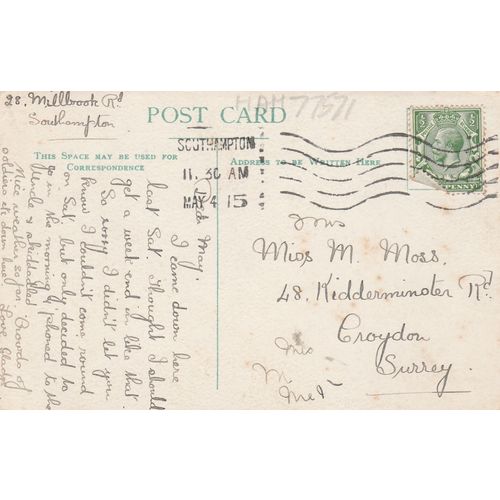 28. Millbrook Rd
Southampton
HAM 77571
POST CARD
SOUTHAMPTON
11. 30 AM
MAY 4 15
THIS SPACE MAY BE USED FOR
CORRESPONDENCE
ADDRESS TO BE WRITTEN HERE
PENNY
Dear May,
I came down here
last Sat. Thought I should
get a week end in like that.
So sorry I didn't let you
know I couldn't come round
on Sat. but only decided to
go in the morning & 'phoned to the
Uncle & skidaddled
Nice weather so far. Crowds of
soldiers etc down here Love Gladys
Miss M. Moss.
48. Kidderminster Rd
Croydon
Surrey.
Mis
M